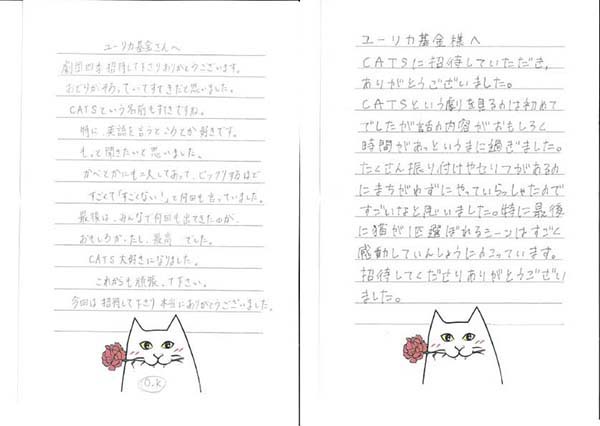 ユーリカ基金さんへ
劇団四季招待して下さりありがとうございます。
おどりがそろっていてすてきだと思いました。
CATSという名前もすきですね。
特に、英語を言うところとか好きです。
もっと聞きたいと思いました。
かべとかにも工夫してあって、ビックリするほど
すごくて「すごくない!」と何回も言っていました。
最後は、みんなで何回も出てきたのが、
おもしろかったし、最高でした。
CATS大好きになりました。
これからも頑張って下さい。
今回は招待して下さり本当にありがとうございました。
O.K
ユーリカ基金様へ
CATSに招待していただき、
ありがとうございました。
CATSという劇を見るのは初めて
でしたが話の内容がおもしろく
時間があっというまに過ぎました。
たくさん振り付けやセリフがあるの
にまちがわずにやっていらっしゃたので
すごいなと思いました。特に最後
に猫が1匹選ばれるシーンはすごく
感動していんしょうにのこっています。
招待してくださりありがとうござい
ました。